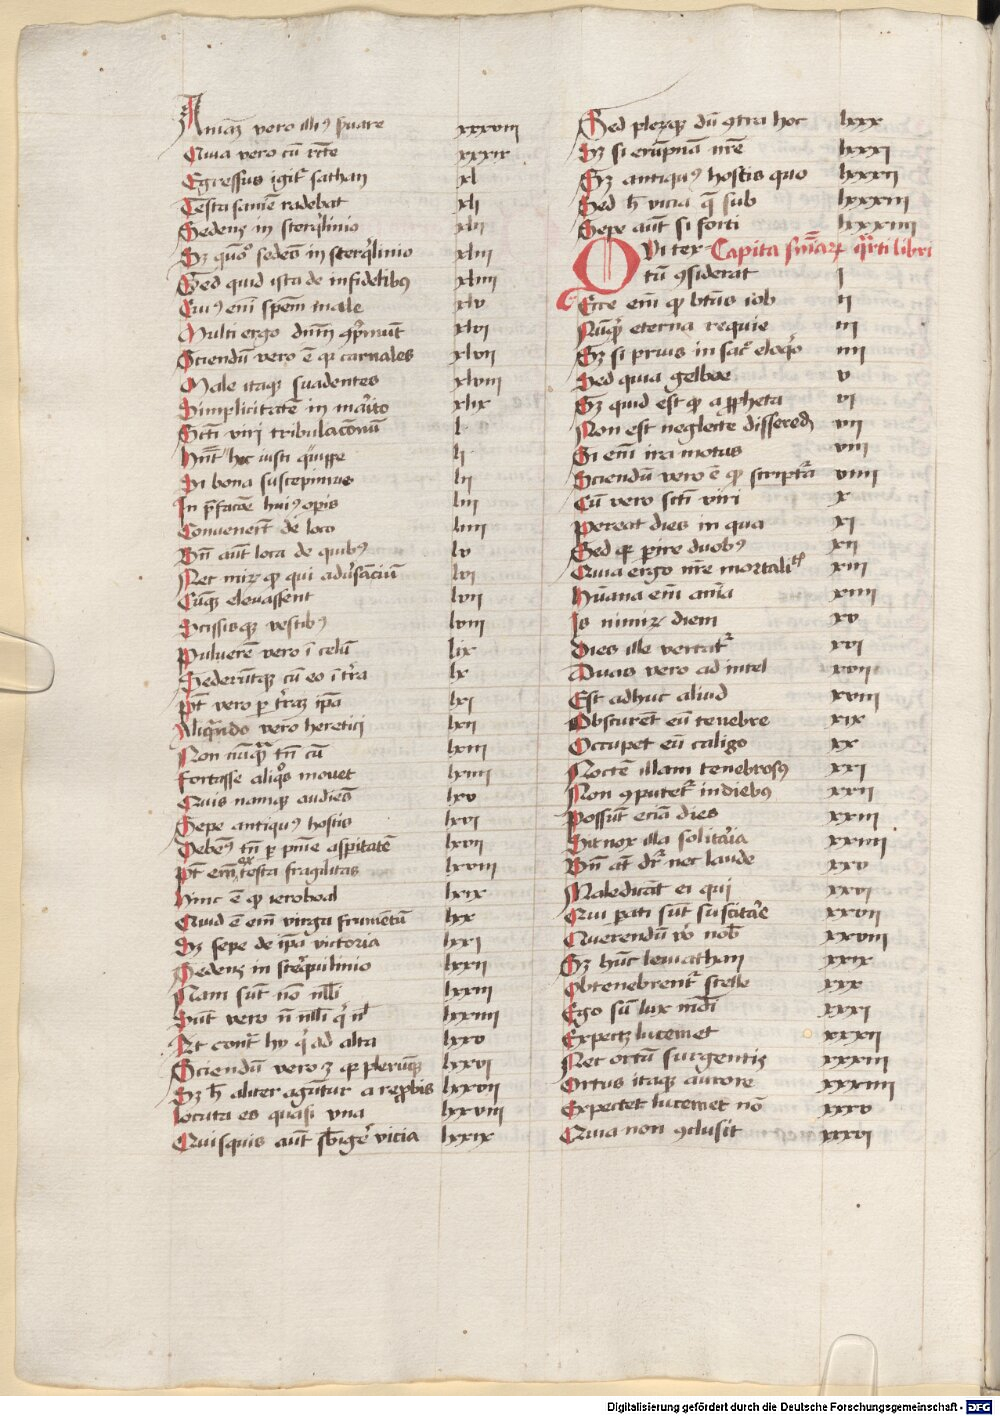 Animā vero illiꝰ ẜuare xxxviii
Quia vero cū rc̄te xxxix
Egressus igit᷑ sathan xl
Testa saniē radebat xli
Sedens in sterq̇linio xlii
Sꝫ quō sedēs in sterq̇linio xliii
Sed quid ista de infidelibꝰ xliiii
Cuiꝰ em̄ spēm male xlv
Multi ergo xlvi
Sciendū vero ē ꝙ carnales xlvii
Male itaqꝫ suadentes xlviii
Simplicitatē in xlix
Scī viri tribulacōnū l
hn̄t hoc iusti li
Si bona suscepimus lii
In p̄facōe huiꝰ opis liii
Convenerūt de loco liiii
Bn̄ aūt loca de quibꝰ lv
Nec miꝝ ꝙ qui lvi
Cūqꝫ elevassent lvii
Scissisqꝫ vestibꝰ lviii
Pulverē vero ī celū lix
Sederūtqꝫ cū eo ī t̄ra lx
Pt̄ vero ꝑ ip̄a lxi
Aliqn̄do vero heretici lxii
Non nūqᷓ tn̄ cū lxiii
Fortasse aliqͦs mouet lxiiii
Quis namqꝫ audiēs lxv
Sepe antiquꝰ hostis lxvi
Debemꝰ tn̄ ꝑ aspitatē lxvii
Pt̄ em̄ ex testa fragilitas lxviii
hinc ē ꝙ ieroboal lxix
Quid ē em̄ virga frumētū lxx
Sꝫ sepe de ip̄a victoria lxxi
Sedens in sterquilinio lxxii
Nam sūt nōnulli lxxiii
Sūt vero nōnulli lxxiiii
At ad alta lxxv
Sciendū vero ē ꝙ plerūqꝫ lxxvi
Sꝫ h̄ aliter agūtur a reꝓbis lxxvii
Locuta es quasi vna lxxviii
Quisquis aūt vicia lxxix
Sed pleꝝqꝫ dū ꝯtra hoc lxxx
Sꝫ si erūpnā nr̄e lxxxi
Sꝫ antiquꝰ hostis quo lxxxii
Sed h̄ vicia sub lxxxiii
Sepe aūt si forti lxxxiiii
Capita sum̄aꝝ qͣrti libri
QVi tex
tū ꝯsiderat i
Ecce em̄ ꝙ btūs iob ii
Nūqͥd eterna requie iii
Sꝫ si prius in sacͦ eloqͦ iiii
Sed quia gelboe v
Sꝫ quid est ꝙ a ꝓpheta vi
Non est neglecte vii
Si em̄ ira motus viii
Sciendū vero ē ꝙ scriptᷓa viiii
Cū vero scī viri x
Pereat dies in qua xi
Sed ꝙ ꝑire duobꝰ xii
Quia ergo nr̄e mortalitͣ xiii
Hūana em̄ aīa xiiii
Is nimiꝝ diem xv
Dies ille vertat᷑ xvi
Duas vero ad intel xvii
Est adhuc aliud xviii
Obscurēt eū tenebre xix
Occupet eū caligo xx
Noctē illam tenebrosꝰ xxi
Non ꝯputet᷑ in diebꝰ xxii
Possūt eciā dies xxiii
Sit nox illa solitaͥia xxiiii
Bn̄ āt dr̄ nec laude xxv
Maledicāt ei qui xxvi
Qui ꝑati sūt suscitaͤe xxvii
Querendū vͦo nob̄ xxviii
Sꝫ hūc leuiathan xxix
Obtenebrent᷑ stelle xxx
Ego sū lux mūdi xxxi
Expectꝫ lucem et xxxii
Nec ortū surgentis xxxiii
Ortus itaqꝫ aurore xxxiiii
Expectet lucem et nō xxxv
Quia non ꝯclusit xxxvi
Digitalisierung gefördert durch die Deutsche Forschungsgemeinschaft - DFG